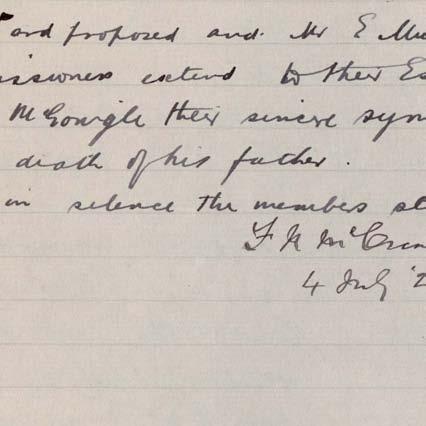 ard proposed and Mr E
extend to their
McGonigle their sincere
death of his father.
in silence the members
4 July '2